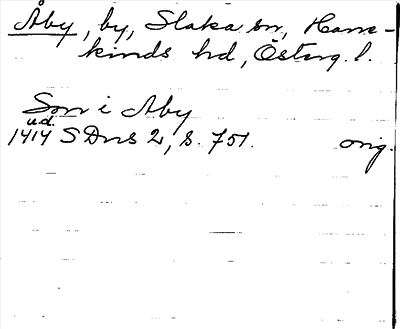 Åby, by, Slaka sn, Hane-
kinds hd, Österg. l.
Som i Aby
u.d.
1414 SDns 2, s. 751. orig.